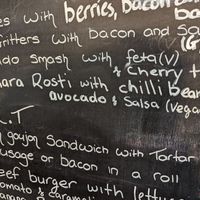 es with berries, bacon
ba
ritters with Bacon and Sa
do Smash with feta (V)
& cherry t
ara Rosti with chilli bean
avocado & Salsa (Vega
.T
goujon Sandwich with Tartar
usage or bacon in a roll
eef burger with lettuce
omato & caramel